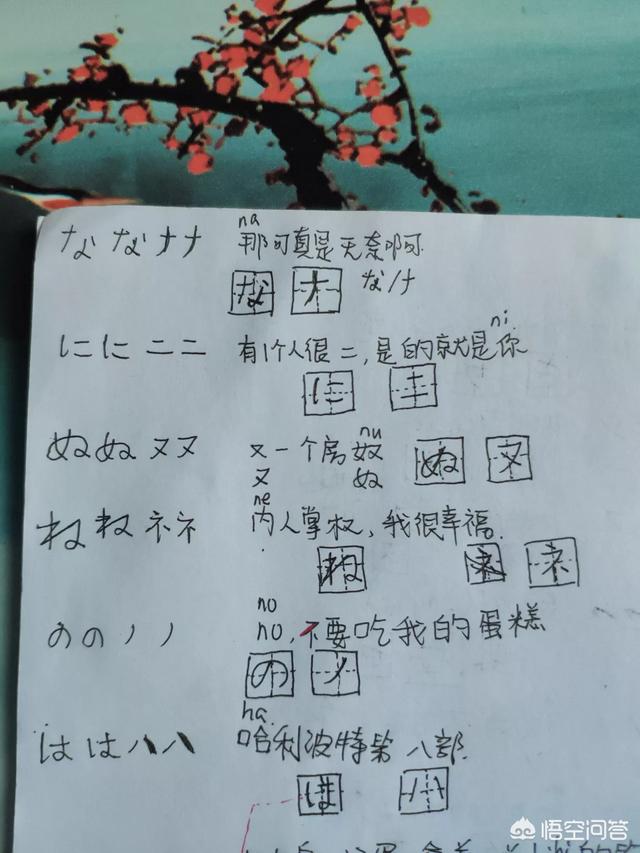 na
なな ナナ 那可真是无奈啊
な ナ な ナ
ni
にに ニニ 有1个人很二，是的就是你
に ニ
nu
ぬぬ ヌヌ 又一个房奴
ぬ ヌ
又 ぬ
ne
ねね ネネ 内人掌权，我很幸福.
ね ネ ネ
no
のの ノノ no，不要吃我的蛋糕
の ノ
ha
はは ハハ 哈利波特第八部
は ハ
悟空问答